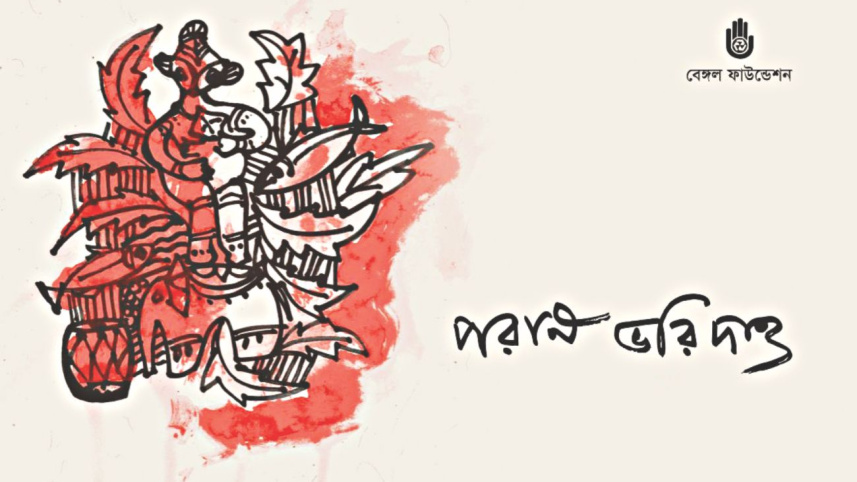 বেঙ্গল ফাউন্ডেশন
পরান ভরি দাও